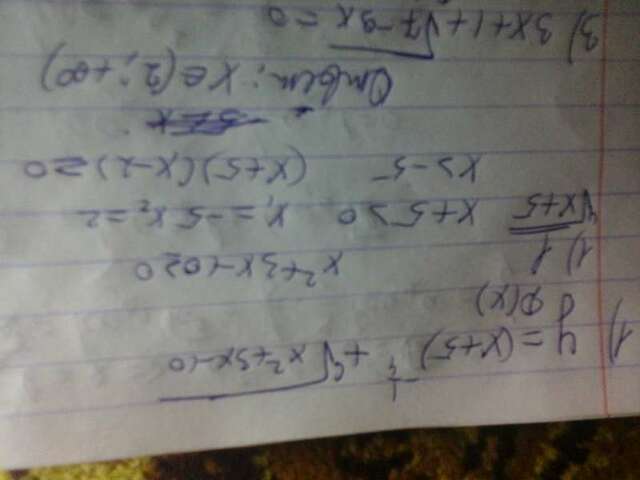 1) y = (x+5)^(-1/4) + ⁴√(x²+3x-10)
D(x)
1) 1/⁴√(x+5) x²+3x-10≥0
x+5>0 x₁=-5 x₂=2
x>-5 (x+5)(x-2)≥0
Ответ: x∈(2;+∞)
3) 3x+1+√(7-9x)=0